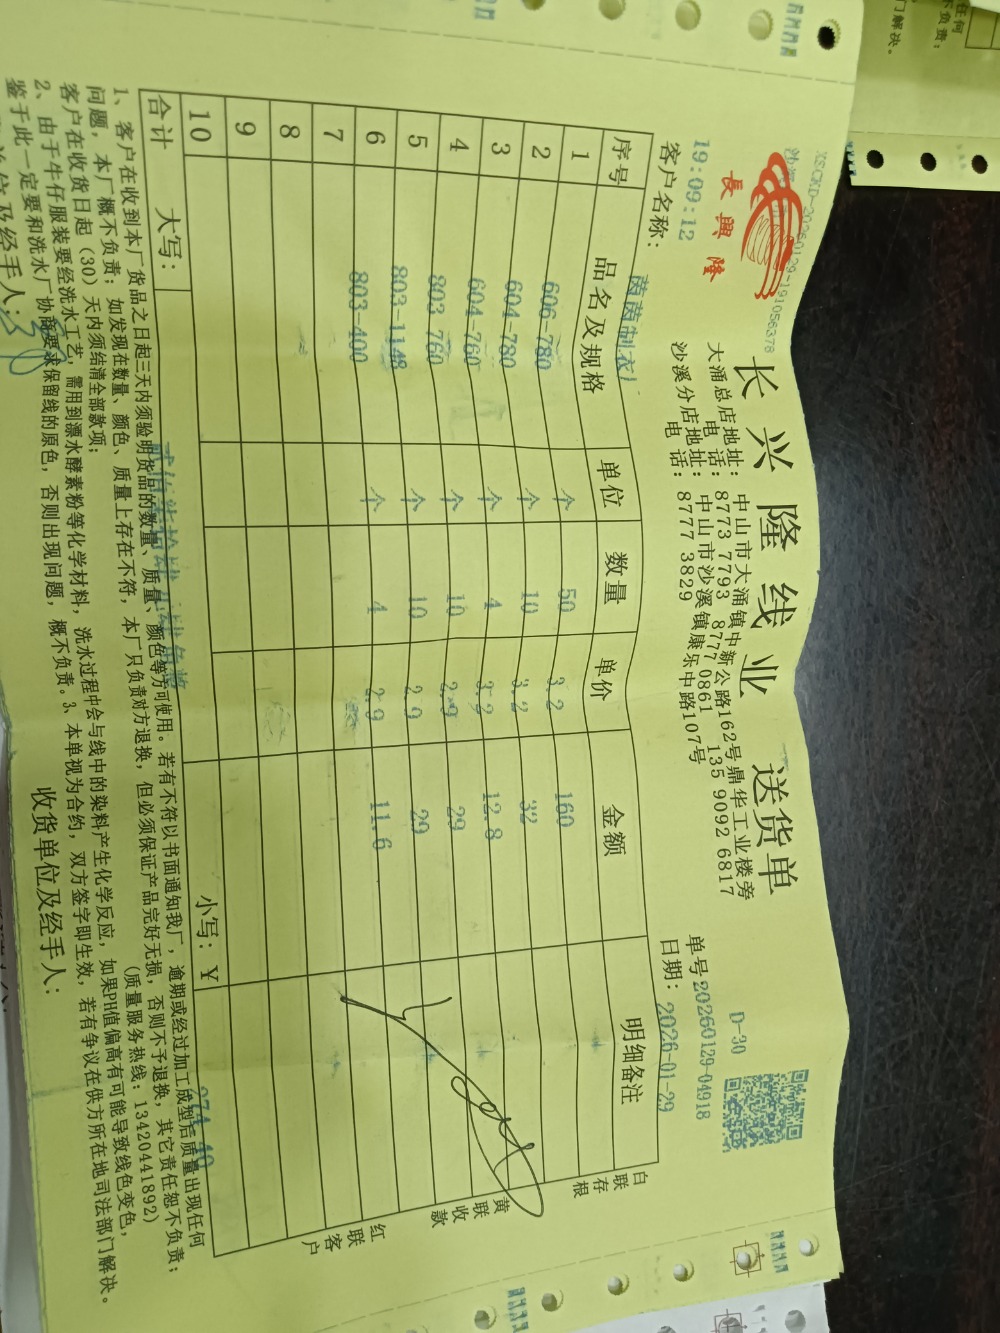 XSCKD-20260129-191056378
長興隆
长兴隆线业 送货单
D-30
大涌总店地址: 中山市大涌镇中新公路162号鼎华工业楼旁
电 话: 8773 7793 8777 0861 135 9092 6817
沙溪分店地址: 中山市沙溪镇康乐中路107号
电 话: 8777 3829
19:09:12
单号20260129-04918
客户名称: 茵茵制衣厂
日期: 2026-01-29
序号 品名及规格 单位 数量 单价 金额 明细备注
1 606-780 个 50 3.2 160
2 604-780 个 10 3.2 32
3 604-760 个 4 3.2 12.8
4 803-760 个 10 2.9 29
5 803-1148 个 10 2.9 29
6 803-400 个 4 2.9 11.6
7
8
9
10
合计 大写: 贰佰柒拾肆元肆角整 小写: ¥ 274.40
白联存根
黄联收款
红联客户
1、客户在收到本厂货品之日起三天内须验明货品的数量、质量、颜色等方可使用。若有不符以书面通知我厂, 逾期或经过加工成型后质量出现任何
问题, 本厂概不负责; 如发现在数量、颜色、质量上存在不符, 本厂只负责对方退换, 但必须保证产品完好无损, 否则不予退换, 其它责任恕不负责;
客户在收货日起 (30) 天内须结清全部款项; (质量服务热线: 13420441892)
2、由于牛仔服装要经洗水工艺, 需用到漂水酵素粉等化学材料, 洗水过程中会与线中的染料产生化学反应, 如果PH值偏高有可能导致线色变色,
鉴于此一定要和洗水厂协商要求保留线的原色, 否则出现问题, 概不负责。3、本单视为合约, 双方签字即生效, 若有争议在供方所在地司法部门解决。
单位及经手人:
收货单位及经手人:
任何
不负责;
门解决。